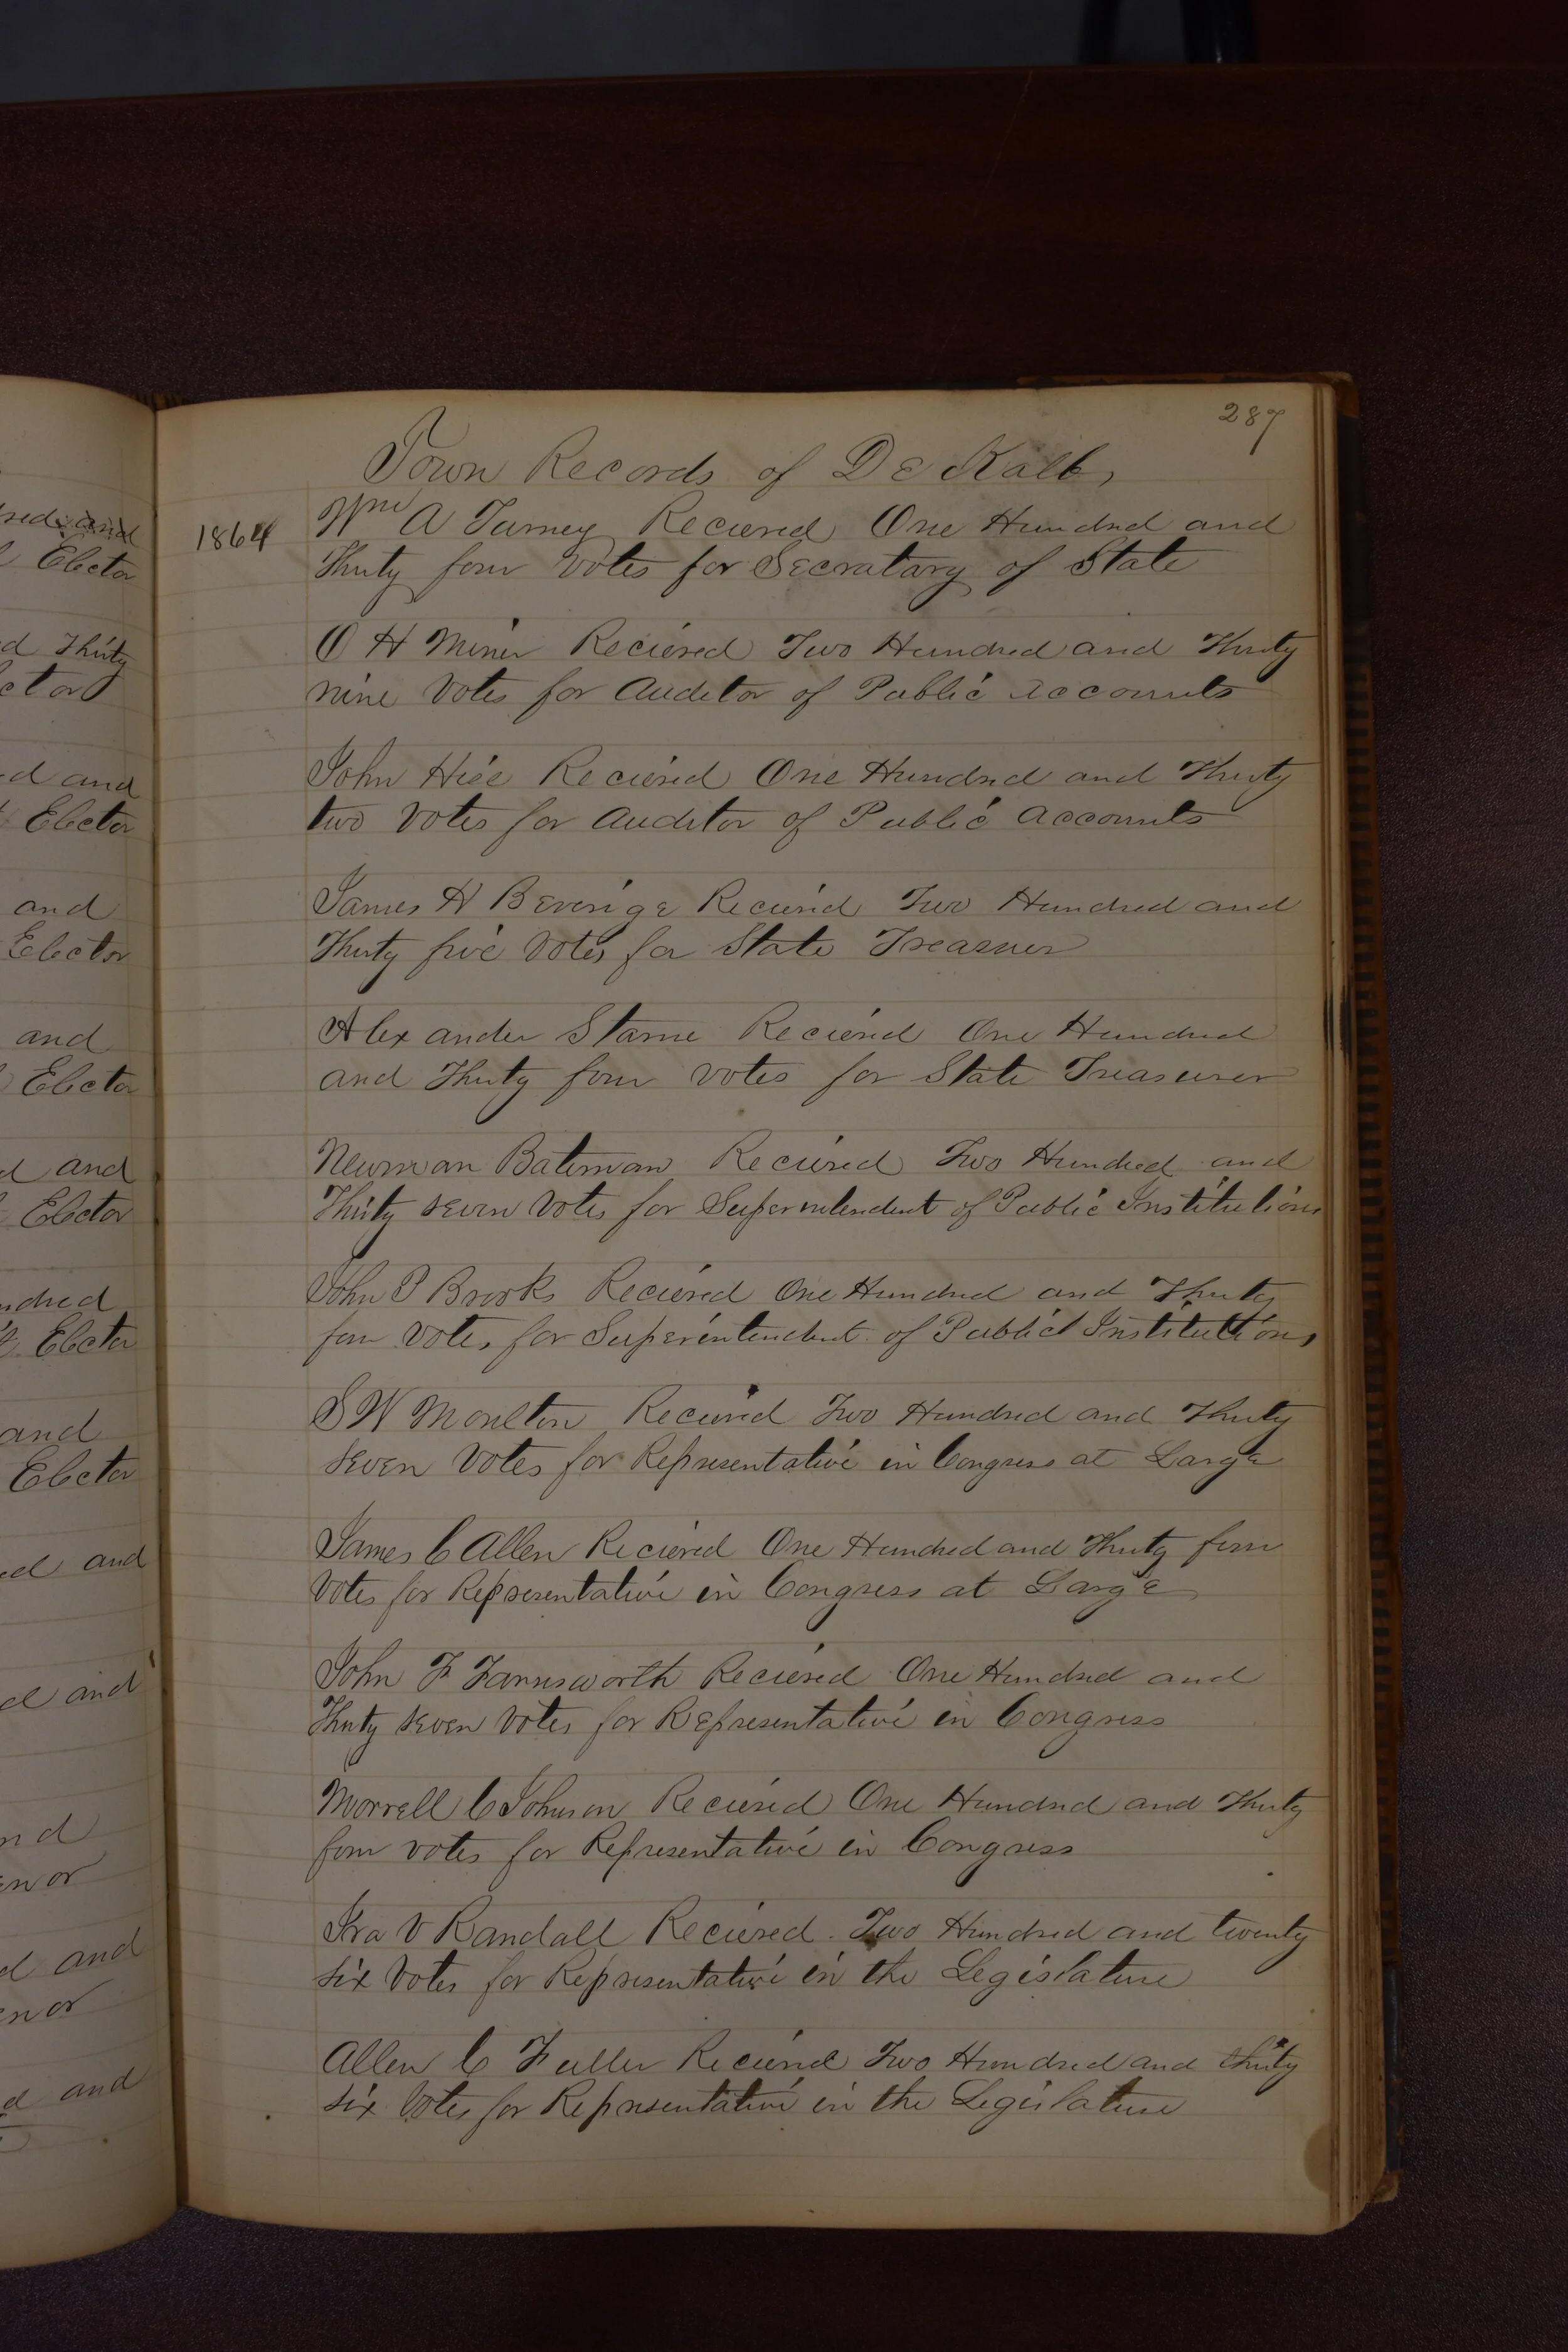 287
Town Records of De Kalb,
1864
Wm A Turney Recieved One Hundred and
Thirty four votes for Secratary of State
O H Miner Recieved Two Hundred and Thirty
nine Votes for Auditor of Public Accounts
John Hise Recieved One Hundred and Thirty
two Votes for Auditor of Public Accounts
James H Beverige Recieved Two Hundred and
Thirty five Votes for State Treasurer
Alexander Starne Recieved One Hundred
and Thirty four votes for State Treasurer
Newman Bateman Recieved Two Hundred and
Thirty seven Votes for Superintendent of Public Institutions
John P Brooks Recieved One Hundred and Thirty
four Votes for Superintendent of Public Institutions
S W Moulton Recieved Two Hundred and Thirty
seven Votes for Representative in Congress at Large
James C Allen Recieved One Hundred and Thirty four
Votes for Representative in Congress at Large
John F Farnsworth Recieved One Hundred and
Thirty seven Votes for Representative in Congress
Morrell C Johnson Recieved One Hundred and Thirty
four votes for Representative in Congress
Ira V Randall Recieved Two Hundred and twenty
six Votes for Representative in the Legislature
Allen C Fuller Recieved Two Hundred and thirty
six Votes for Representative in the Legislature
and
Elector
d Thirty
ector
d and
Elector
and
Elector
and
Elector
d and
Elector
ndred
Elector
and
Elector
ed and
d and
nd
enor
d and
enor
d and